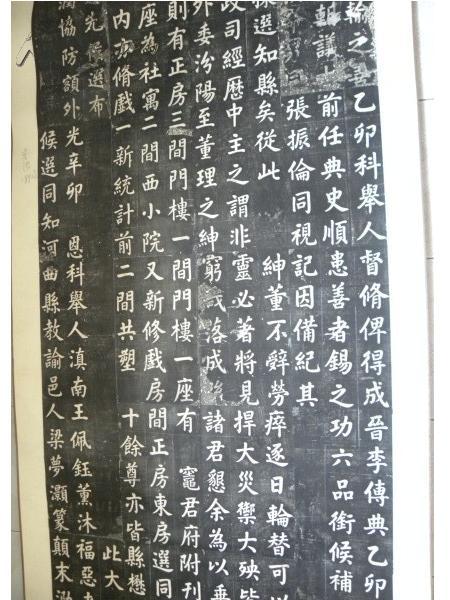 輪之善乙卯科舉人督脩俾得成晉李傳典乙卯
軒謹 前任典史順患善者錫之功六品銜候補
張振倫同視記因備紀其
選知縣矣從此 紳董不辭勞瘁逐日輪替可以
政司經歷中主之謂非靈必著將見捍大災禦大殃皆
外委汾陽至董理之紳窮 落成 諸君懇余為以垂
則有正房三間門樓一間門樓一座有 竈君府附刊
座為社寓二間西小院又新修戲房間正房東房選同
內亦脩戲一新統計前二間共塑 十餘尊亦皆縣懋
先候選布 此大
潤協防額外光辛卯 恩科舉人滇南王佩鈺薰沐福惡
候選同知河曲縣教諭邑人梁夢灝篆顛末泐